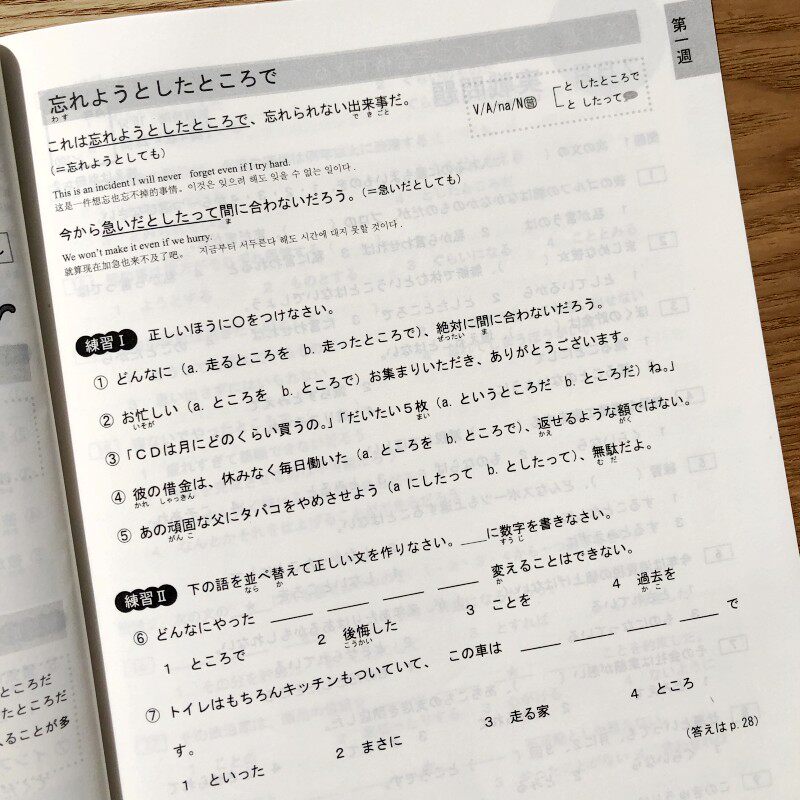 第一週
忘れようとしたところで
わす
これは忘れようとしたところで、忘れられない出来事だ。
できごと
(=忘れようとしても)
V/A/na/N普
と したところで
と したって
This is an incident I will never forget even if I try hard.
这是一件想忘也忘不掉的事情。이것은 잊으려 해도 잊을 수 없는 일이다.
今から急いだとしたって間に合わないだろう。(=急いだとしても)
ま
We won't make it even if we hurry.
就算现在加急也来不及了吧。 지금부터 서두른다 해도 시간에 대지 못할 것이다.
練習Ⅰ 正しいほうに○をつけなさい。
① どんなに(a. 走るところを b. 走ったところで)、絶対に間に合わないだろう。
ぜったい ま
② お忙しい(a. ところを b. ところで)お集まりいただき、ありがとうございます。
いそが
③「CDは月にどのくらい買うの。」「だいたい5枚(a. というところだ b. ところだ)ね。」
まい
④ 彼の借金は、休みなく毎日働いた(a. ところを b. ところで)、返せるような額ではない。
かれ しゃっきん かえ がく
⑤ あの頑固な父にタバコをやめさせよう(a にしたって b. としたって)、無駄だよ。
がんこ むだ
練習Ⅱ 下の語を並べ替えて正しい文を作りなさい。___に数字を書きなさい。
なら か すうじ
⑥ どんなにやった ____ ____ ____ ____ 変えることはできない。
か
1 ところで 2 後悔した 3 ことを 4 過去を
こうかい かこ
⑦ トイレはもちろんキッチンもついていて、 この車は ____ ____ ____ ____ で
す。
1 といった 2 まさに 3 走る家 4 ところ
(答えはp.28)
ところだ
たところだ
ることが多